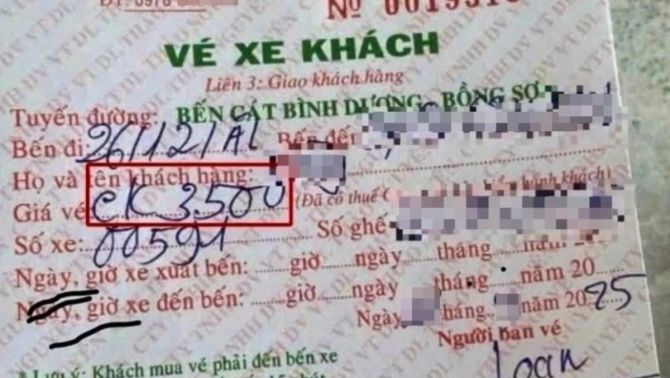 ĐT: 0978
Nº 0019518
VÉ XE KHÁCH
Liên 3: Giao khách hàng
Tuyến đường: BẾN CÁT BÌNH DƯƠNG - BỒNG SƠN
Bến đi: 26/12/AL Bến đến
Họ và tên khách hàng:
Giá vé CK 3.500 (Đã có thuế hành khách)
Số xe: 00591 Số ghế
Ngày, giờ xe xuất bến: ...... giờ ngày tháng năm 20
Ngày, giờ xe đến bến: ...... giờ ngày tháng năm 20
Ngày tháng năm 2025
Người bán vé
* Lưu ý: Khách mua vé phải đến bến xe
Loan